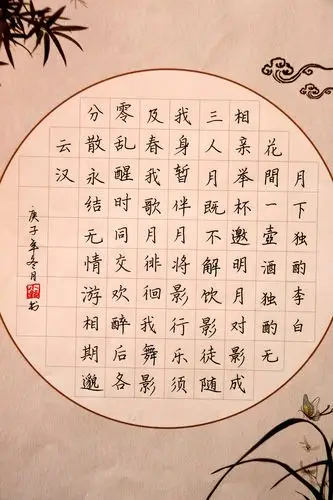 月下独酌李白
花間一壺酒独酌无
相亲举杯邀明月对影成
三人月既不解饮影徒随
我身暂伴月将影行乐须
及春我歌月徘徊我舞影
零乱醒时同交欢醉后各
分散永结无情游相期邈
云汉
庚子年冬月书